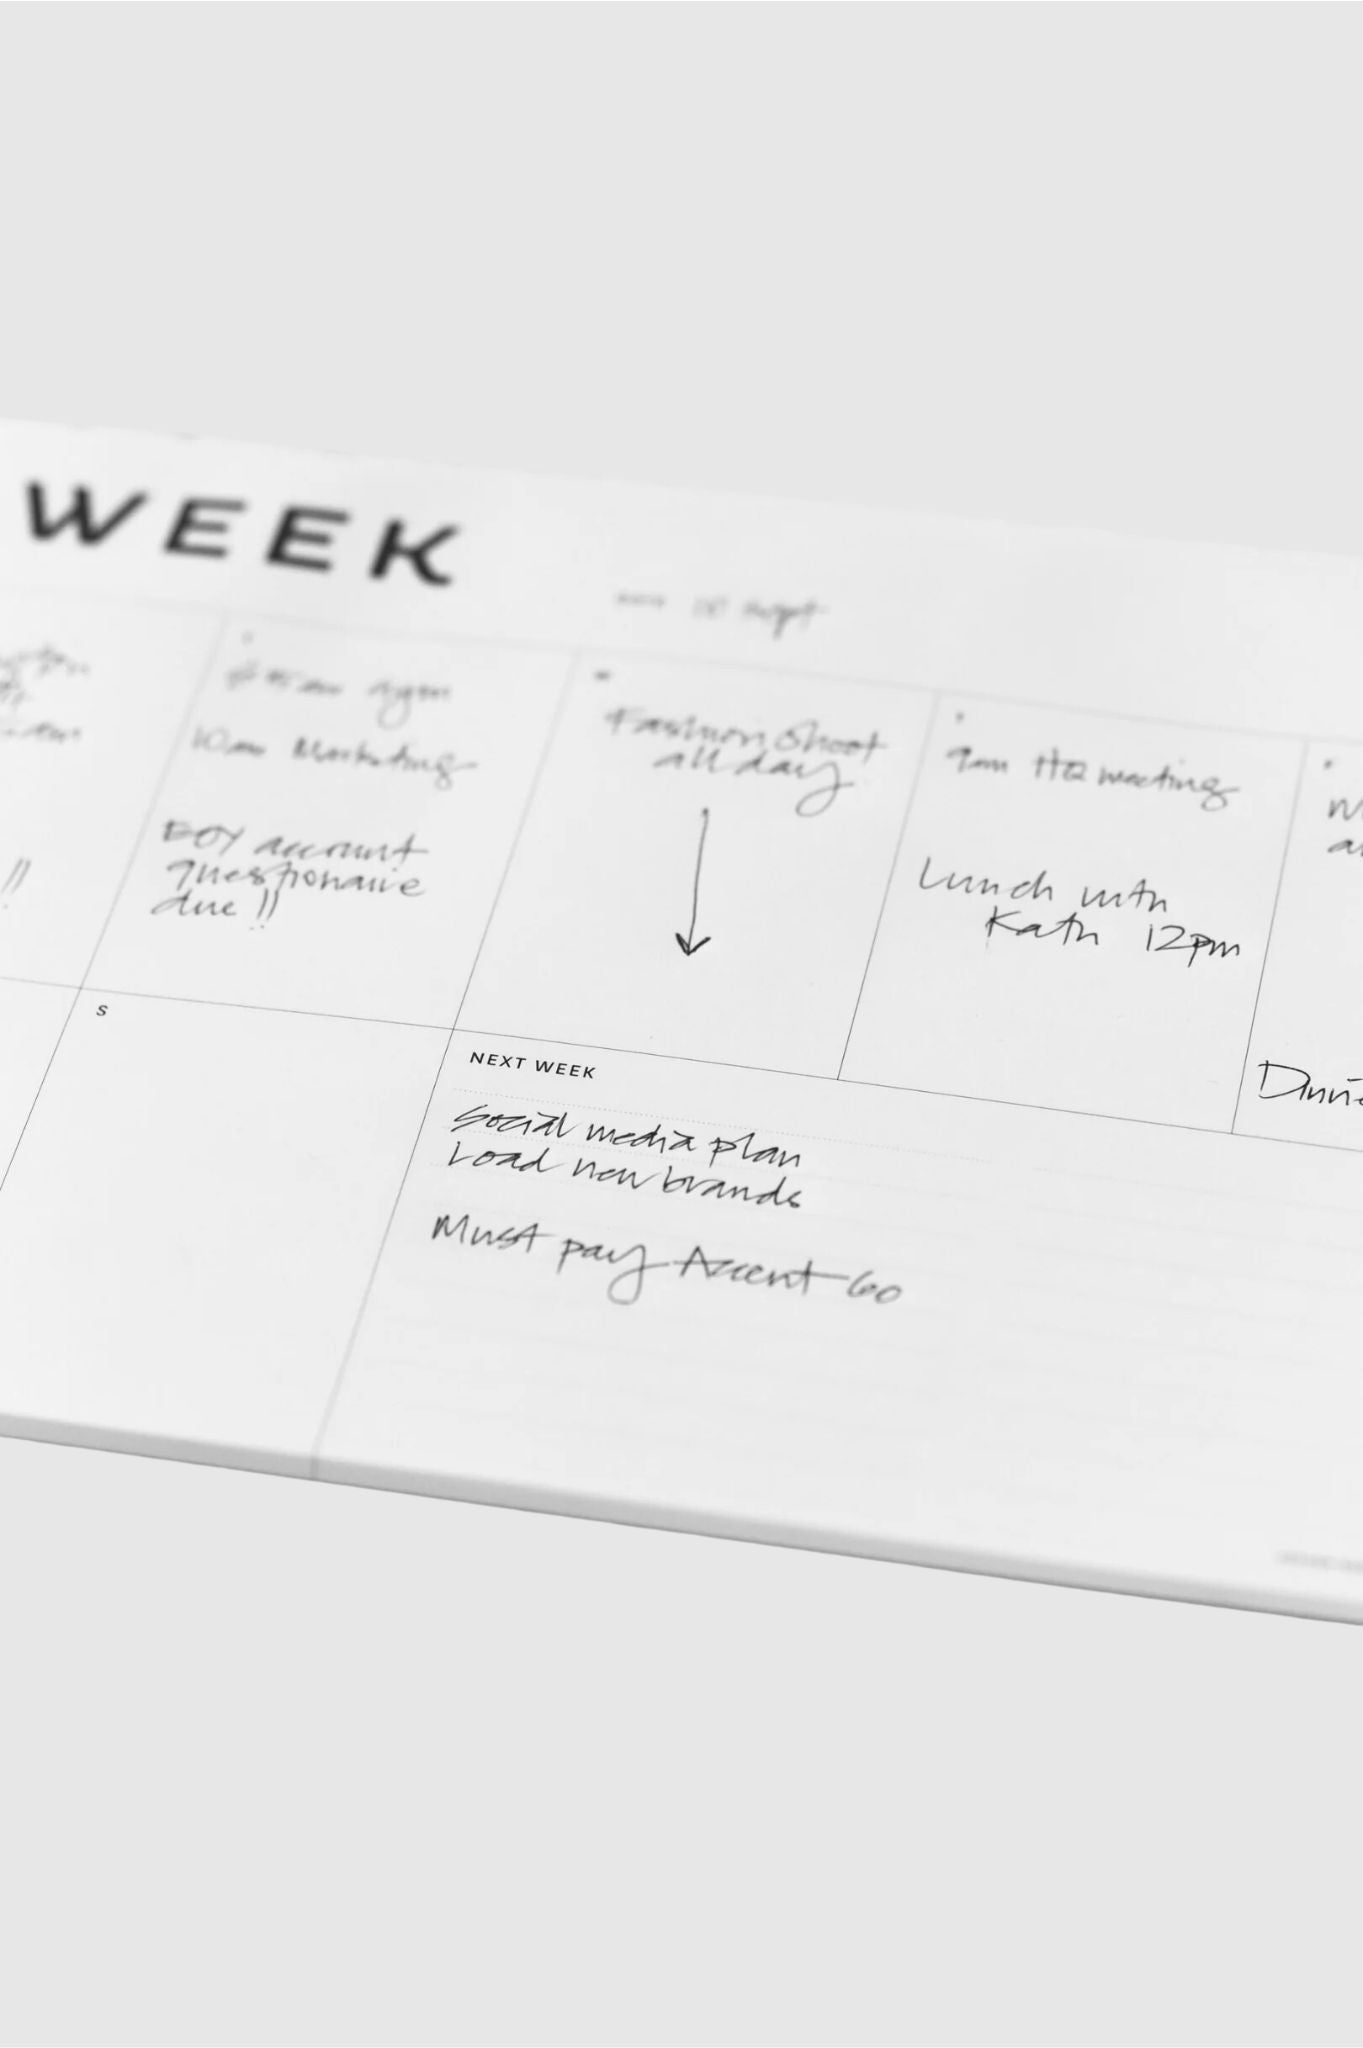 WEEK
10 Sept
gym
10am Marketing
EOY account
questionaire
due !!
Fashion Shoot
all day
9am HQ meeting
Lunch with
Kath 12pm
!!
S
NEXT WEEK
Social media plan
Load new brands
Must pay Accent Go